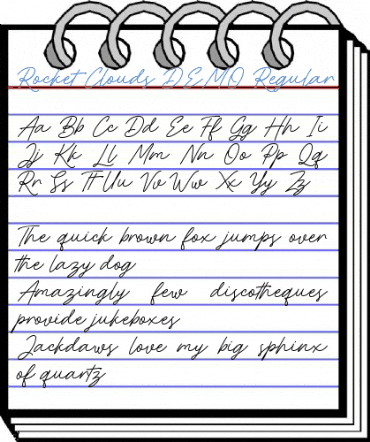 Rocket Clouds DEMO Regular
Aa Bb Cc Dd Ee Ff Gg Hh Ii
Jj Kk Ll Mm Nn Oo Pp Qq
Rr Ss Tt Uu Vv Ww Xx Yy Zz
The quick brown fox jumps over
the lazy dog
Amazingly few discotheques
provide jukeboxes
Jackdaws love my big sphinx
of quartz